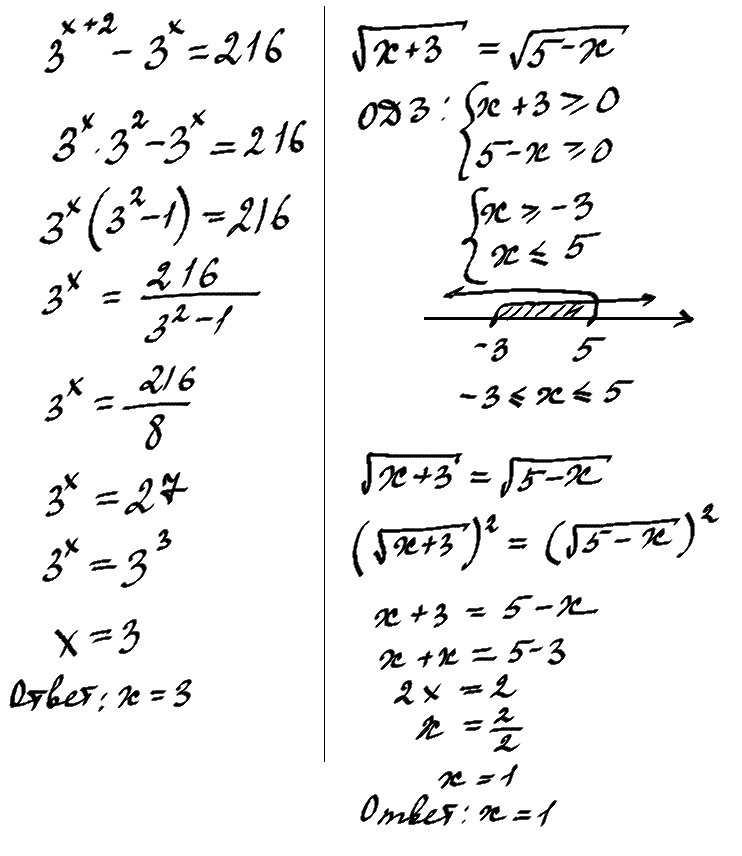 3^{x+2} - 3^x = 216
3^x · 3^2 - 3^x = 216
3^x (3^2 - 1) = 216
3^x = \frac{216}{3^2 - 1}
3^x = \frac{216}{8}
3^x = 27
3^x = 3^3
x = 3
Ответ: x = 3
√(x+3) = √(5-x)
ОДЗ: { x + 3 ≥ 0
5 - x ≥ 0
{ x ≥ -3
x ≤ 5
-3 5
-3 ≤ x ≤ 5
√(x+3) = √(5-x)
(√(x+3))^2 = (√(5-x))^2
x + 3 = 5 - x
x + x = 5 - 3
2x = 2
x = \frac{2}{2}
x = 1
Ответ: x = 1